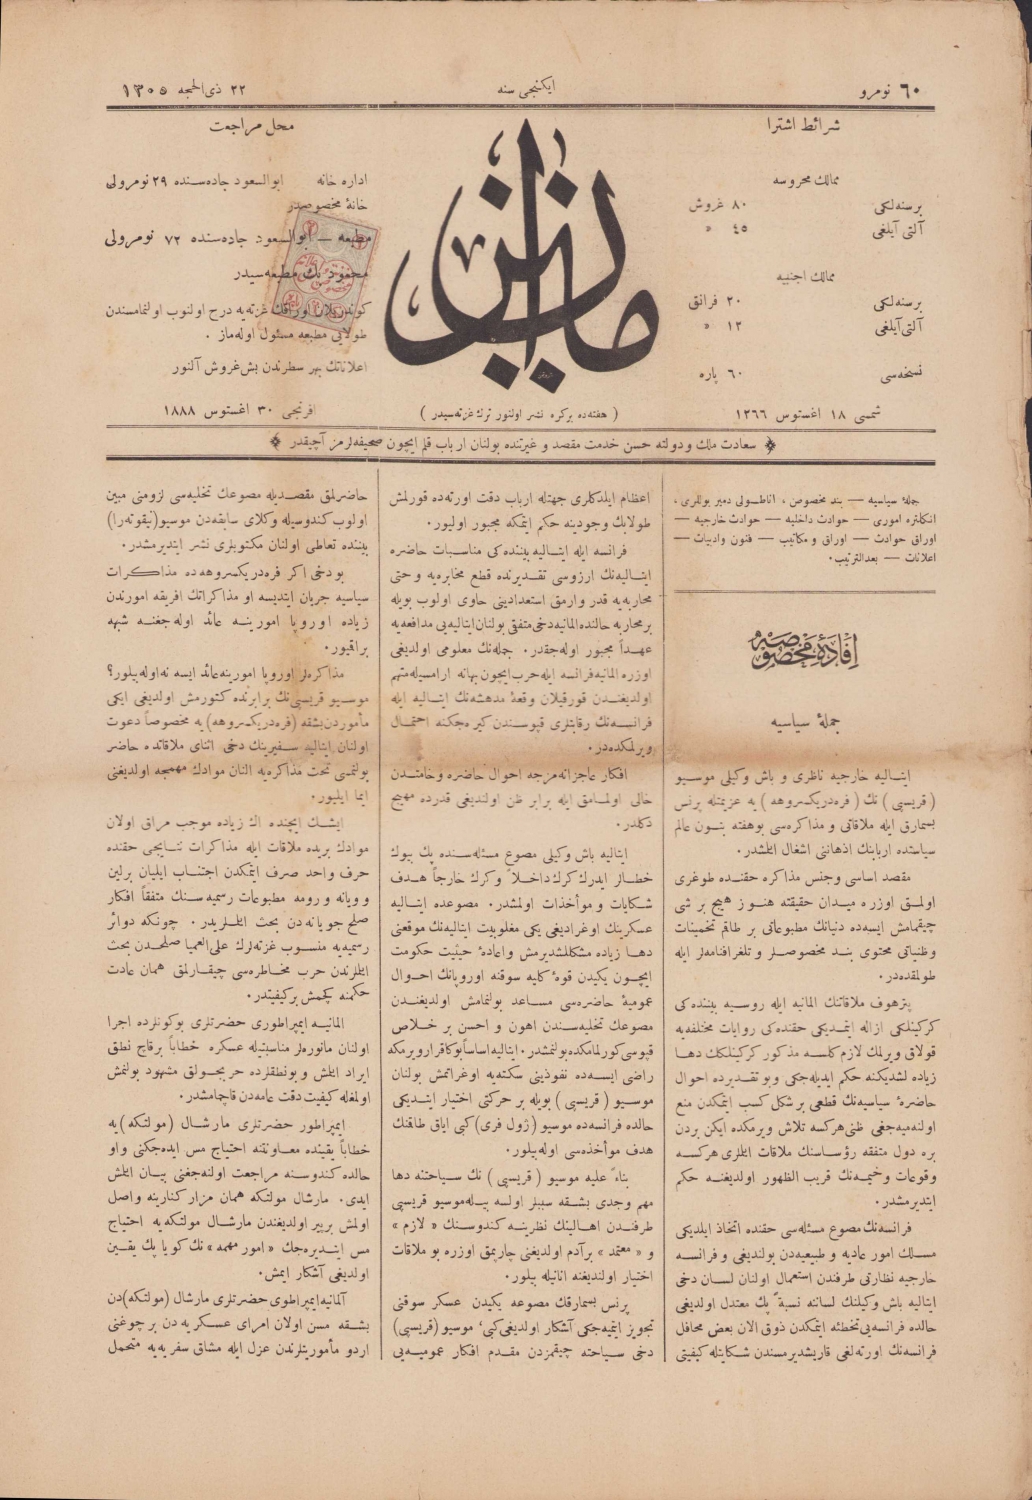 ٦٠ نومرو
ایكنجی سنه
٢٢ ذی الحجه ١٣٠٥
شرائط اشترا
ممالك محروسه
برسنه‌لكی ٨٠ غروش
آلتی آیلغی ٤٥ »
ممالك اجنبیه
برسنه‌لكی ٢٠ فرانق
آلتی آیلغی ١٢ »
نسخه‌سی ٦٠ پاره
شمسی ١٨ اغستوس ١٢٦٦
میزان
( هفته‌ده بركره نشر اولنور ترك غزته‌سیدر )
محل مراجعت
اداره خانه ابوالسعود جاده‌سنده ٢٩ نومرولی
خانهٔ مخصوصدر
مطبعه — ابوالسعود جاده‌سنده ٧٢ نومرولی
محمود بك مطبعه‌سیدر
كوندریلان اوراقك غزته‌یه درج اولنوب اولنمامسندن
طولایی مطبعه مسئول اوله‌ماز .
اعلاناتك بهر سطرندن بش غروش آلنور
افرنجی ٣٠ اغستوس ١٨٨٨
سعادت ملك و دولته حسن خدمت مقصد و غیرتنده بولنان ارباب قلم ایچون صحیفه‌لرمز آچیقدر
جملهٔ سیاسیه — بند مخصوص ، اناطولی دمیر یوللری ،
انكلتره اموری — حوادث داخلیه — حوادث خارجیه —
اوراق حوادث — اوراق و مكاتیب — فنون وادبیات —
اعلانات — بعدالترتیب .
افادهٔ مخصوصه
جملهٔ سیاسیه
ایتالیه خارجیه ناظری و باش وكیلی موسیو
( قریسپی ) نك ( فره‌دریكسروهه ) یه عزیمتله پرنس
بسمارق ایله ملاقاتی و مذاكره‌سی بوهفته بتون عالم
سیاستده اربابنك اذهاننی اشغال ائلشدر .
مقصد اساسی وجنس مذاكره حقنده طوغری
اولمق اوزره میدان حقیقته هنوز هیچ بر شی
چیقمامش ایسه‌ده دنیانك مطبوعاتی بر طاقم تخمینات
وظنیاتی محتوی بند مخصوصلر و تلغرافنامه‌لر ایله
طولمقده‌در .
پترهوف ملاقاتنك المانیه ایله روسیه بیننده كی
كركینلكی ازاله ایتمدیكی حقنده كی روایات مختلفه‌یه
قولاق ویرلمك لازم كلسه مذكور كركینلكك دها
زیاده لشدیكنه حكم ایدیله‌جكی وبو تقدیرده احوال
حاضرهٔ سیاسیه‌نك قطعی برشكل كسب ایتمكدن منع
اولنه‌میه‌جغی ظنی هركسه تلاش ویرمكده ایكن بردن
بره دول متفقه رؤساسنك ملاقات ائللری هركسه
وقوعات وخیمه‌نك قریب الظهور اولدیغنه حكم
ایتدیرمشدر .
فرانسه‌نك مصوع مسئله‌سی حقنده اتخاذ ایلدیكی
مسلك امور عادیه و طبیعیه‌دن بولندیغی و فرانسه
خارجیه نظارتی طرفندن استعمال اولنان لسان دخی
ایتالیه باش وكیلنك لساننه نسبةً پك معتدل اولدیغی
حالده فرانسه‌یی تخطئه ایتمكدن ذوق الان بعض محافل
فرانسه‌نك اورته‌لغی قاریشدیرمسندن شكایتله كیفیتی
اعظام ایلدكلری جهتله ارباب دقت اورته‌ده قورلمش
طولابك وجودینه حكم ایتمكه مجبور اولیور .
فرانسه ایله ایتالیه بیننده كی مناسبات حاضره
ایتالیه‌نك ارزوسی تقدیرنده قطع مخابره‌یه و حتی
محاربه‌یه قدر وارمق استعدادینی حاوی اولوب بویله
برمحاربه حالنده المانیه دخی متفقی بولنان ایتالیه‌یی مدافعه‌یه
عهداً مجبور اوله‌جقدر . جمله‌نك معلومی اولدیغی
اوزره المانیه فرانسه ایله حرب ایچون بهانه ارامسیله متهم
اولدیغندن قورقیلان وقعهٔ مدهشه‌نك ایتالیه ایله
فرانسه‌نك رقابتلری قپوسندن كیره جكنه احتمال
ویرلمكده‌در .
افكار عاجزانه‌مزجه احوال حاضره وخامتدن
خالی اولمامق ایله برابر ظن اولندیغی قدرده مهیج
دكلدر .
ایتالیه باش وكیلی مصوع مسئله‌سنده پك بیوك
خطالر ایدرك كرك داخلاً و كرك خارجاً هدف
شكایات و مؤاخذات اولمشدر . مصوعده ایتالیه
عسكرینك اوغرادیغی یكی مغلوبیت ایتالیه‌نك موقعنی
دها زیاده مشكللشدیرمش واعادهٔ حیثیت حكومت
ایچون یكیدن قوهٔ كلیه سوقنه اوروپانك احوال
عمومیهٔ حاضره‌سی مساعد بولنمامش اولدیغندن
مصوعك تخلیه‌سندن اهون و احسن بر خلاص
قپوسی كورلمامكده بولنمشدر . ایتالیه اساساً بوكا قرار ویرمكه
راضی ایسه‌ده نفوذینی سكته‌یه اوغراتمش بولنان
موسیو ( قریسپی ) بویله بر حركتی اختیار ایتدیكی
حالده فرانسه‌ده موسیو ( ژول فری ) كبی ایاق طاقنك
هدف مؤاخذه‌سی اوله‌بیلور .
بناءً علیه موسیو ( قریسپی ) نك سیاحتنه دها
مهم وجدی بشقه سببلر اولسه بیله موسیو قریسپی
طرفندن اهالینك نظرینه كندوسنك « لازم »
و « معتمد » برآدم اولدیغنی چارپمق اوزره بو ملاقات
اختیار اولندیغنه انانیله بیلور .
پرنس بسمارقك مصوعه یكیدن عسكر سوقنی
تجویز ایتمیه‌جكی آشكار اولدیغی كبی ، موسیو (قریسپی)
دخی سیاحته چیقمزدن مقدم افكار عمومیه‌یی
حاضرلمق مقصدیله مصوعك تخلیه‌سی لزومنی مبین
اولوب كندوسیله وكلای سابقه‌دن موسیو(نیقوته‌را)
بیننده تعاطی اولنان مكتوبلری نشر ایتدیرمشدر .
بو دخی اكر فره‌دریكسروهه ده مذاكرات
سیاسیه جریان ایتدیسه او مذاكراتك افریقه امورندن
زیاده اوروپا امورینه عائد اوله جغنه شبهه
براقیور .
مذاكره‌لر اوروپا امورینه عائد ایسه نه اوله بیلور ؟
موسیو قریسپی‌نك برابرنده كتورمش اولدیغی ایكی
مأموردن بشقه (فره‌دریكسروهه) یه مخصوصاً دعوت
اولنان ایتالیه سفیرینك دخی اثنای ملاقاتده حاضر
بولنمسی تحت مذاكره‌یه النان موادك مهمجه اولدیغنی
ایما ایلیور .
ایشك ایچنده اك زیاده موجب مراق اولان
موادك بریده ملاقات ایله مذاكرات نتایجی حقنده
حرف واحد صرف ایتمكدن اجتناب ایلیان برلین
و ویانه و رومه مطبوعات رسمیه سنك متفقاً افكار
صلح جویانه‌دن بحث ائللریدر . چونكه دوائر
رسمیه‌یه منسوب غزته‌لرك علی العمیا صلحدن بحث
ائللرندن حرب مخاطره‌سی چیقارلمق همان عادت
حكمنه كچمش بركیفیتدر .
المانیه ایمپراطوری حضرتلری بوكونلرده اجرا
اولنان مانوره‌لر مناسبتیله عسكره خطاباً برقاچ نطق
ایراد ائلش و بونطقلرده حربجولق مشهود بولنمش
اولمغله كیفیت دقت عامه‌دن قاچمامشدر .
ایمپراطور حضرتلری مارشال (مولتكه)یه
خطاباً یقینده معاونتنه احتیاج مس ایده‌جكنی و او
حالده كندوسنه مراجعت اولنه‌جغنی بیان ائلش
ایدی . مارشال مولتكه همان مزار كنارینه واصل
اولمش برپیر اولدیغندن مارشال مولتكه‌یه احتیاج
مس ایتدیره‌جك « امور مهمه » نك كویا پك یقین
اولدیغی آشكار ایمش .
آلمانیه ایمپراطوی حضرتلری مارشال (مولتكه)دن
بشقه مسن اولان امرای عسكریه دن برچوغنی
اردو مأموریتلرندن عزل ایله مشاق سفریه‌یه متحمل